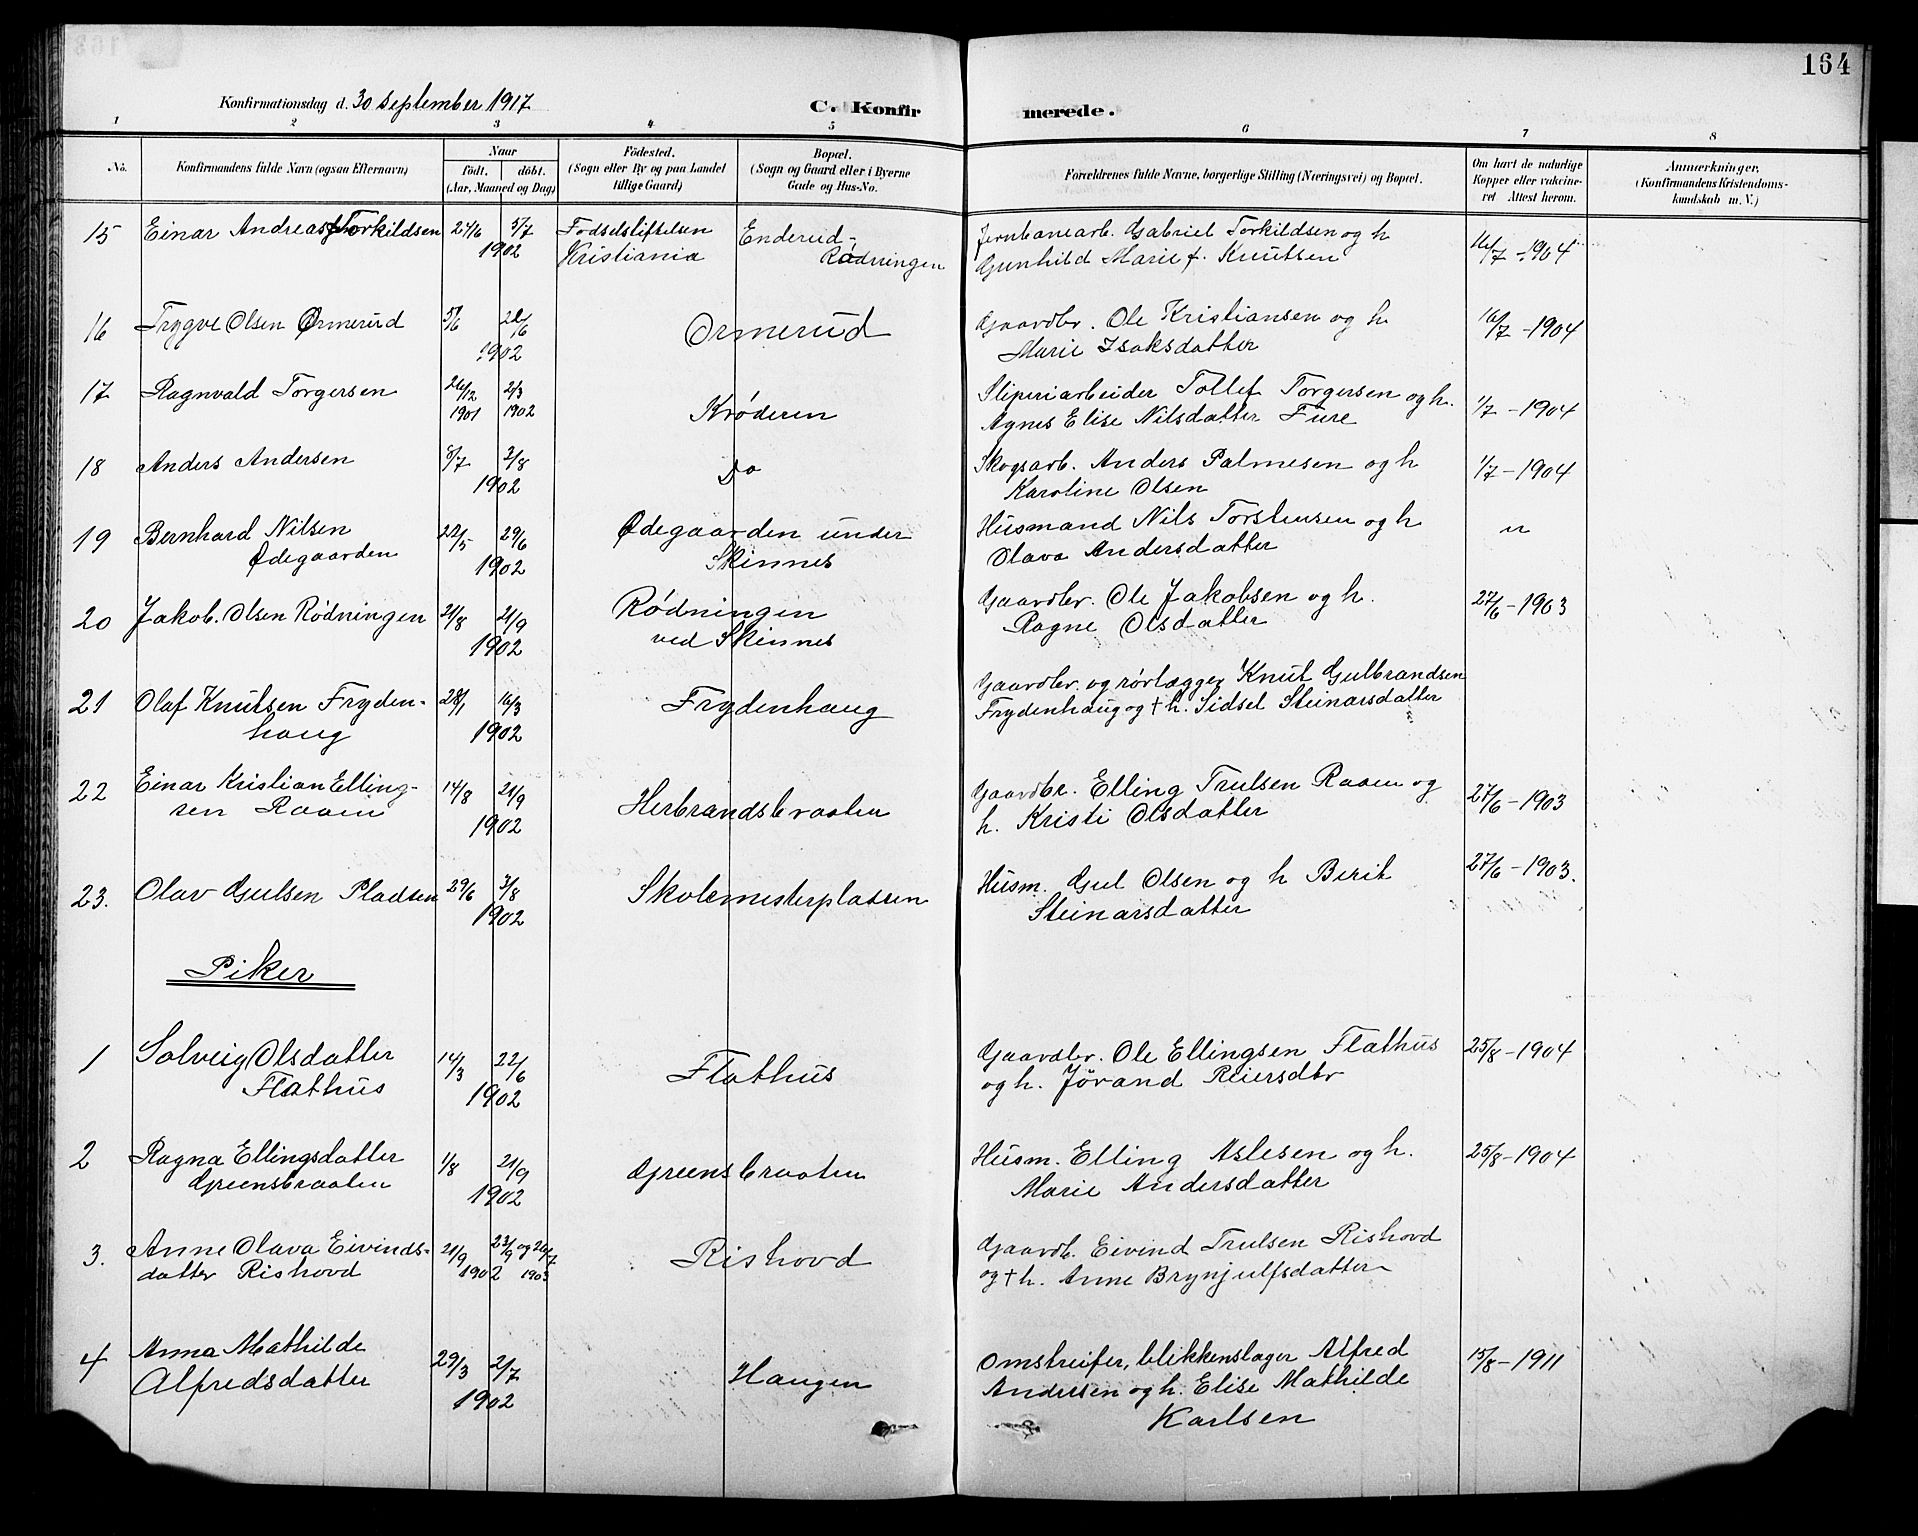 164
Konfirmationsdag d. 30 september 1917
C. Konfirmerede.
1 2 3 4 5 6 7 8
No.
Konfirmandens fulde Navn (ogsaa Efternavn)
Naar
født. døbt.
(Aar, Maaned og Dag)
Fødested.
(Sogn eller By og paa Landet
tillige Gaard)
Bopæl.
(Sogn og Gaard eller i Byerne
Gade og Hus-No.
Forældrenes fulde Navne, borgerlige Stilling (Næringsvei) og Bopæl.
Om havt de naturlige
Kopper eller vaccine-
ret Attest herom.
Anmerkninger.
(Konfirmandens Kristendoms-
kundskab m. V.)
15 Einar Andreas Torkildsen 5/7 Fodselstiftelsen Enderud- Jernbanearb. Gabriel Torkildsen og h 16/7 - 1904
1902 Kristiania Rødningen Gunhild Marie f. Knutsen
16 Trygve Olsen Ormerud 5/6 Ormerud Gaardbr. Ole Kristiansen og h 16/7 - 1904
1902 Marie Isaksdatter
17 Ragnvald Torgersen 26/12 2/3 Krøderen Sliperiarbeider Tollef Torgersen og h. 1/7 - 1904
1901 1902 Agnes Elise Nilsdatter Fure
18 Anders Andersen 8/7 3/8 Do Skogsarb. Anders Palmesen og h 1/7 - 1904
1902 Karoline Olsen
19 Bernhard Nilsen 22/5 29/6 Ødegaarden under Husmand Nils Torstensen og h "
Ødegaarden 1902 Skinnes Olava Andersdatter
20 Jakob Olsen Rødningen 21/8 21/9 Rødningen Gaardbr. Ole Jakobsen og h. 27/6 - 1903
1902 ved Skinnes Ragne Olsdatter
21 Olaf Knutsen Fryden- 28/1 16/3 Frydenhaug Gaardbr. og rørlægger Knut Gulbrandsen
haug 1902 Frydenhaug og † h. Sidsel Steinarsdatter
22 Einar Kristian Elling- 14/8 21/9 Herbrandsbraaten Gaardbr. Elling Trulsen Raaen og 27/6 - 1903
sen Raaen 1902 h. Kristi Olsdatter
23. Olav Gulsen Pladsen 29/6 3/8 Skolemesterplassen Husm. Gul Olsen og h Berit 27/6 - 1903.
1902 Steinarsdatter
Piker
1 Solveig Olsdatter 14/3 22/6 Flathus Gaardbr. Ole Ellingsen Flathus 25/8 - 1904
Flathus 1902 og h. Jørand Reiersdtr
2 Ragna Ellingsdatter 1/8 21/9 Greensbraaten Husm. Elling Aslesen og h. 25/8 - 1904
Greensbraaten 1902 Marie Andersdatter
3. Anne Olava Eivinds- 21/9 23/9 og 26/7 Rishovd Gaardb. Eivind Trulsen Rishovd
datter Rishovd 1902 1903 og † h. Anne Brynjulfsdatter
4 Anna Mathilde 29/3 2/7 Haugen Omstreifer, blikkenslager Alfred 15/8 - 1911
Alfredsdatter 1902 Andersen og h. Elise Mathilde
Karlsen